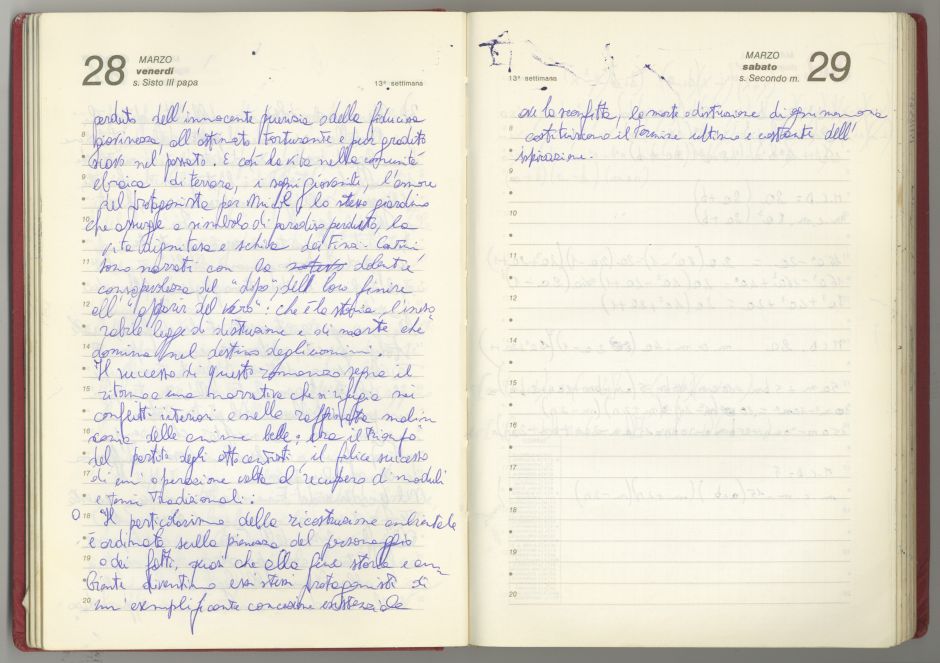 28
MARZO
venerdì
s. Sisto III papa
13ª settimana
perduto dell'innocente puerizia o della fiduciosa
giovinezza, all'ostinato torturante e pur gradito
nel passato. E così la vita nella comunità
ebraica di Ferrara, i sogni giovanili, l'amore
del protagonista per Micol, lo stesso giardino
che assurge a simbolo di paradiso perduto, la
vita dignitosa e schiva dei Finzi-Contini
sono narrati con la dolente
consapevolezza del "dopo", del loro finire
all'"apparir del vero": che è la storia, l'ineso
rabile legge di distruzione e di morte che
domina nel destino degli uomini.
Il successo di questo romanzo segna il
ritorno a una narrativa che si rifugia nei
conflitti interiori e nella raffinata malin
conia delle anime belle; era il trionfo
del partito degli ottocentisti, il felice successo
di un'operazione volta al recupero di moduli
e temi tradizionali.
O Il particolarismo della ricostruzione ambientale
è ordinato sulla pienezza del personaggio
o dei fatti, quasi che alla fine storia e am
biente diventino essi stessi protagonisti di
un'esemplificante concezione esistenziale
8
9
10
11
12
13
14
15
16
17
18
19
20
13ª settimana
MARZO
sabato
s. Secondo m.
29
cui la sconfitta, la morte o distruzione di ogni memoria
costituiscono il termine ultimo e costante dell'
ispirazione.
8
9
10
11
12
13
14
15
16
17
18
19
20